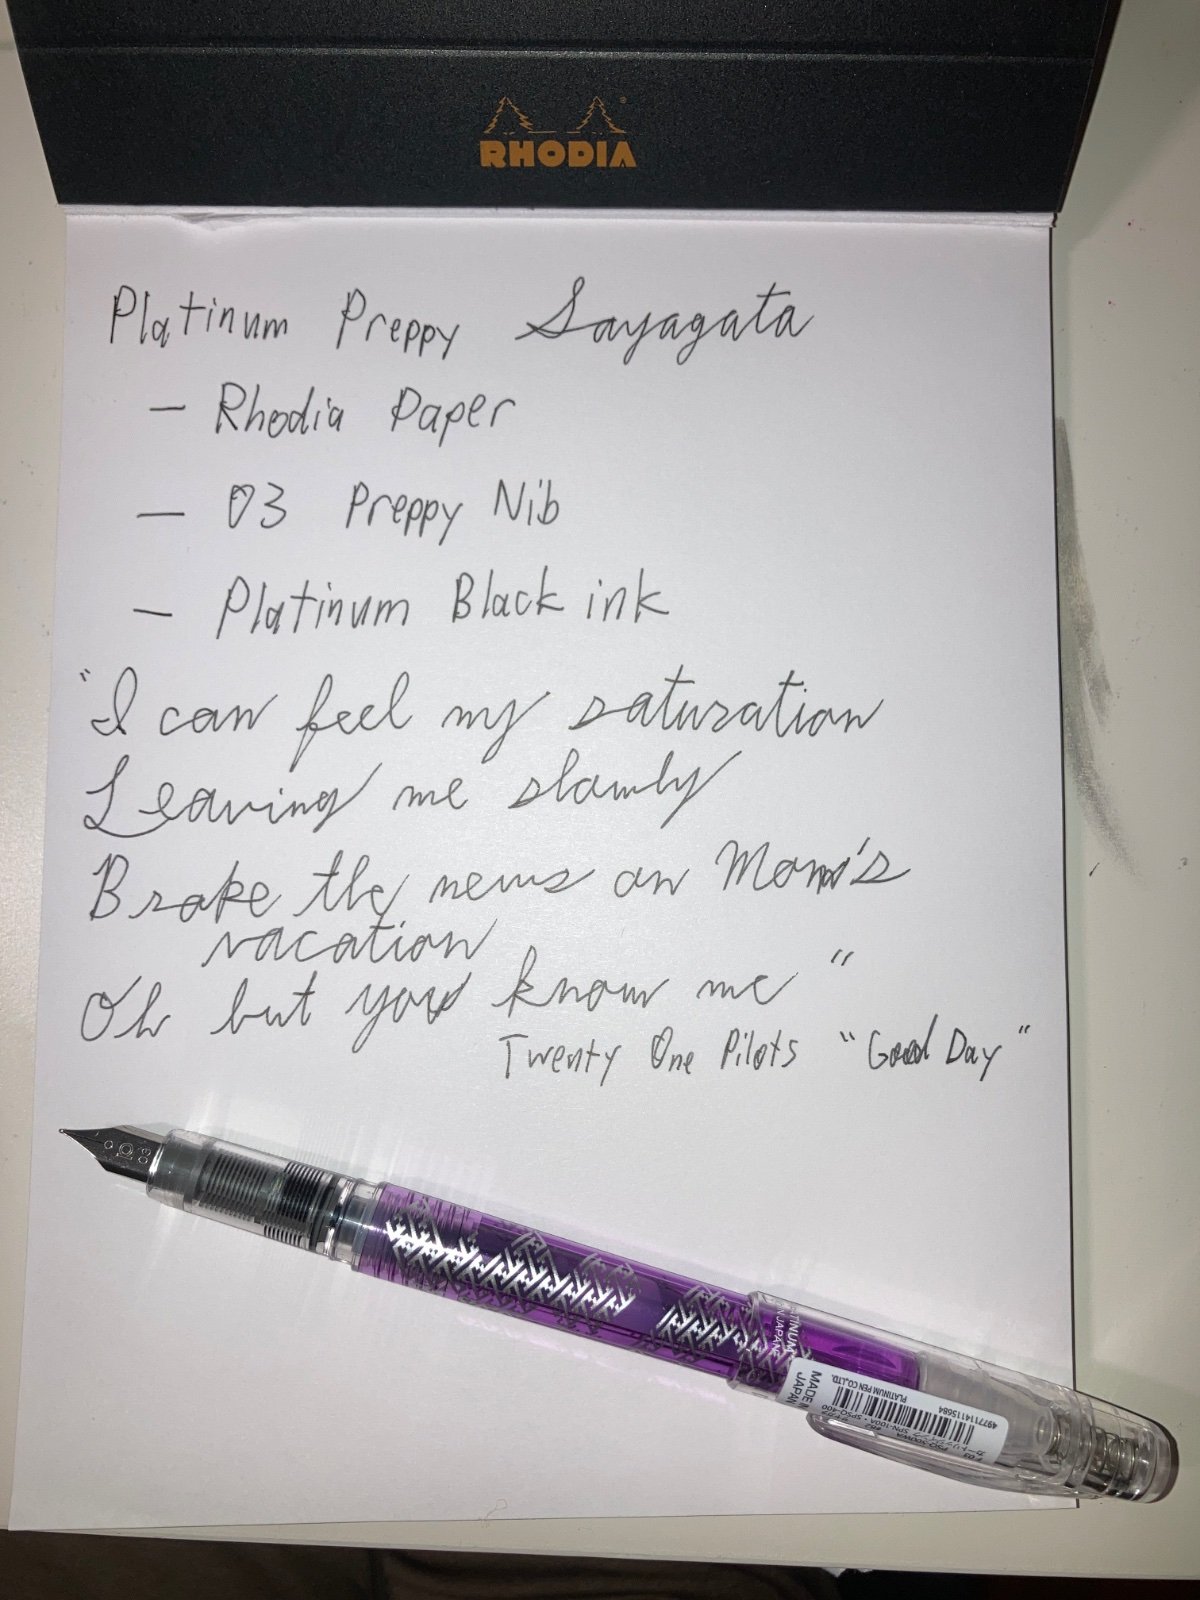 RHODIA
Platinum Preppy Sayagata
— Rhodia Paper
— 03 Preppy Nib
— Platinum Black ink
"I can feel my saturation
Leaving me slowly
Brake the news on Mom's
vacation
Oh but you know me"
Twenty One Pilots "Good Day"
03
PLATINUM
JAPAN
MADE IN
JAPAN
PLATINUM PEN CO.,LTD.
4977114115684
SPN-100A • SPSQ-400